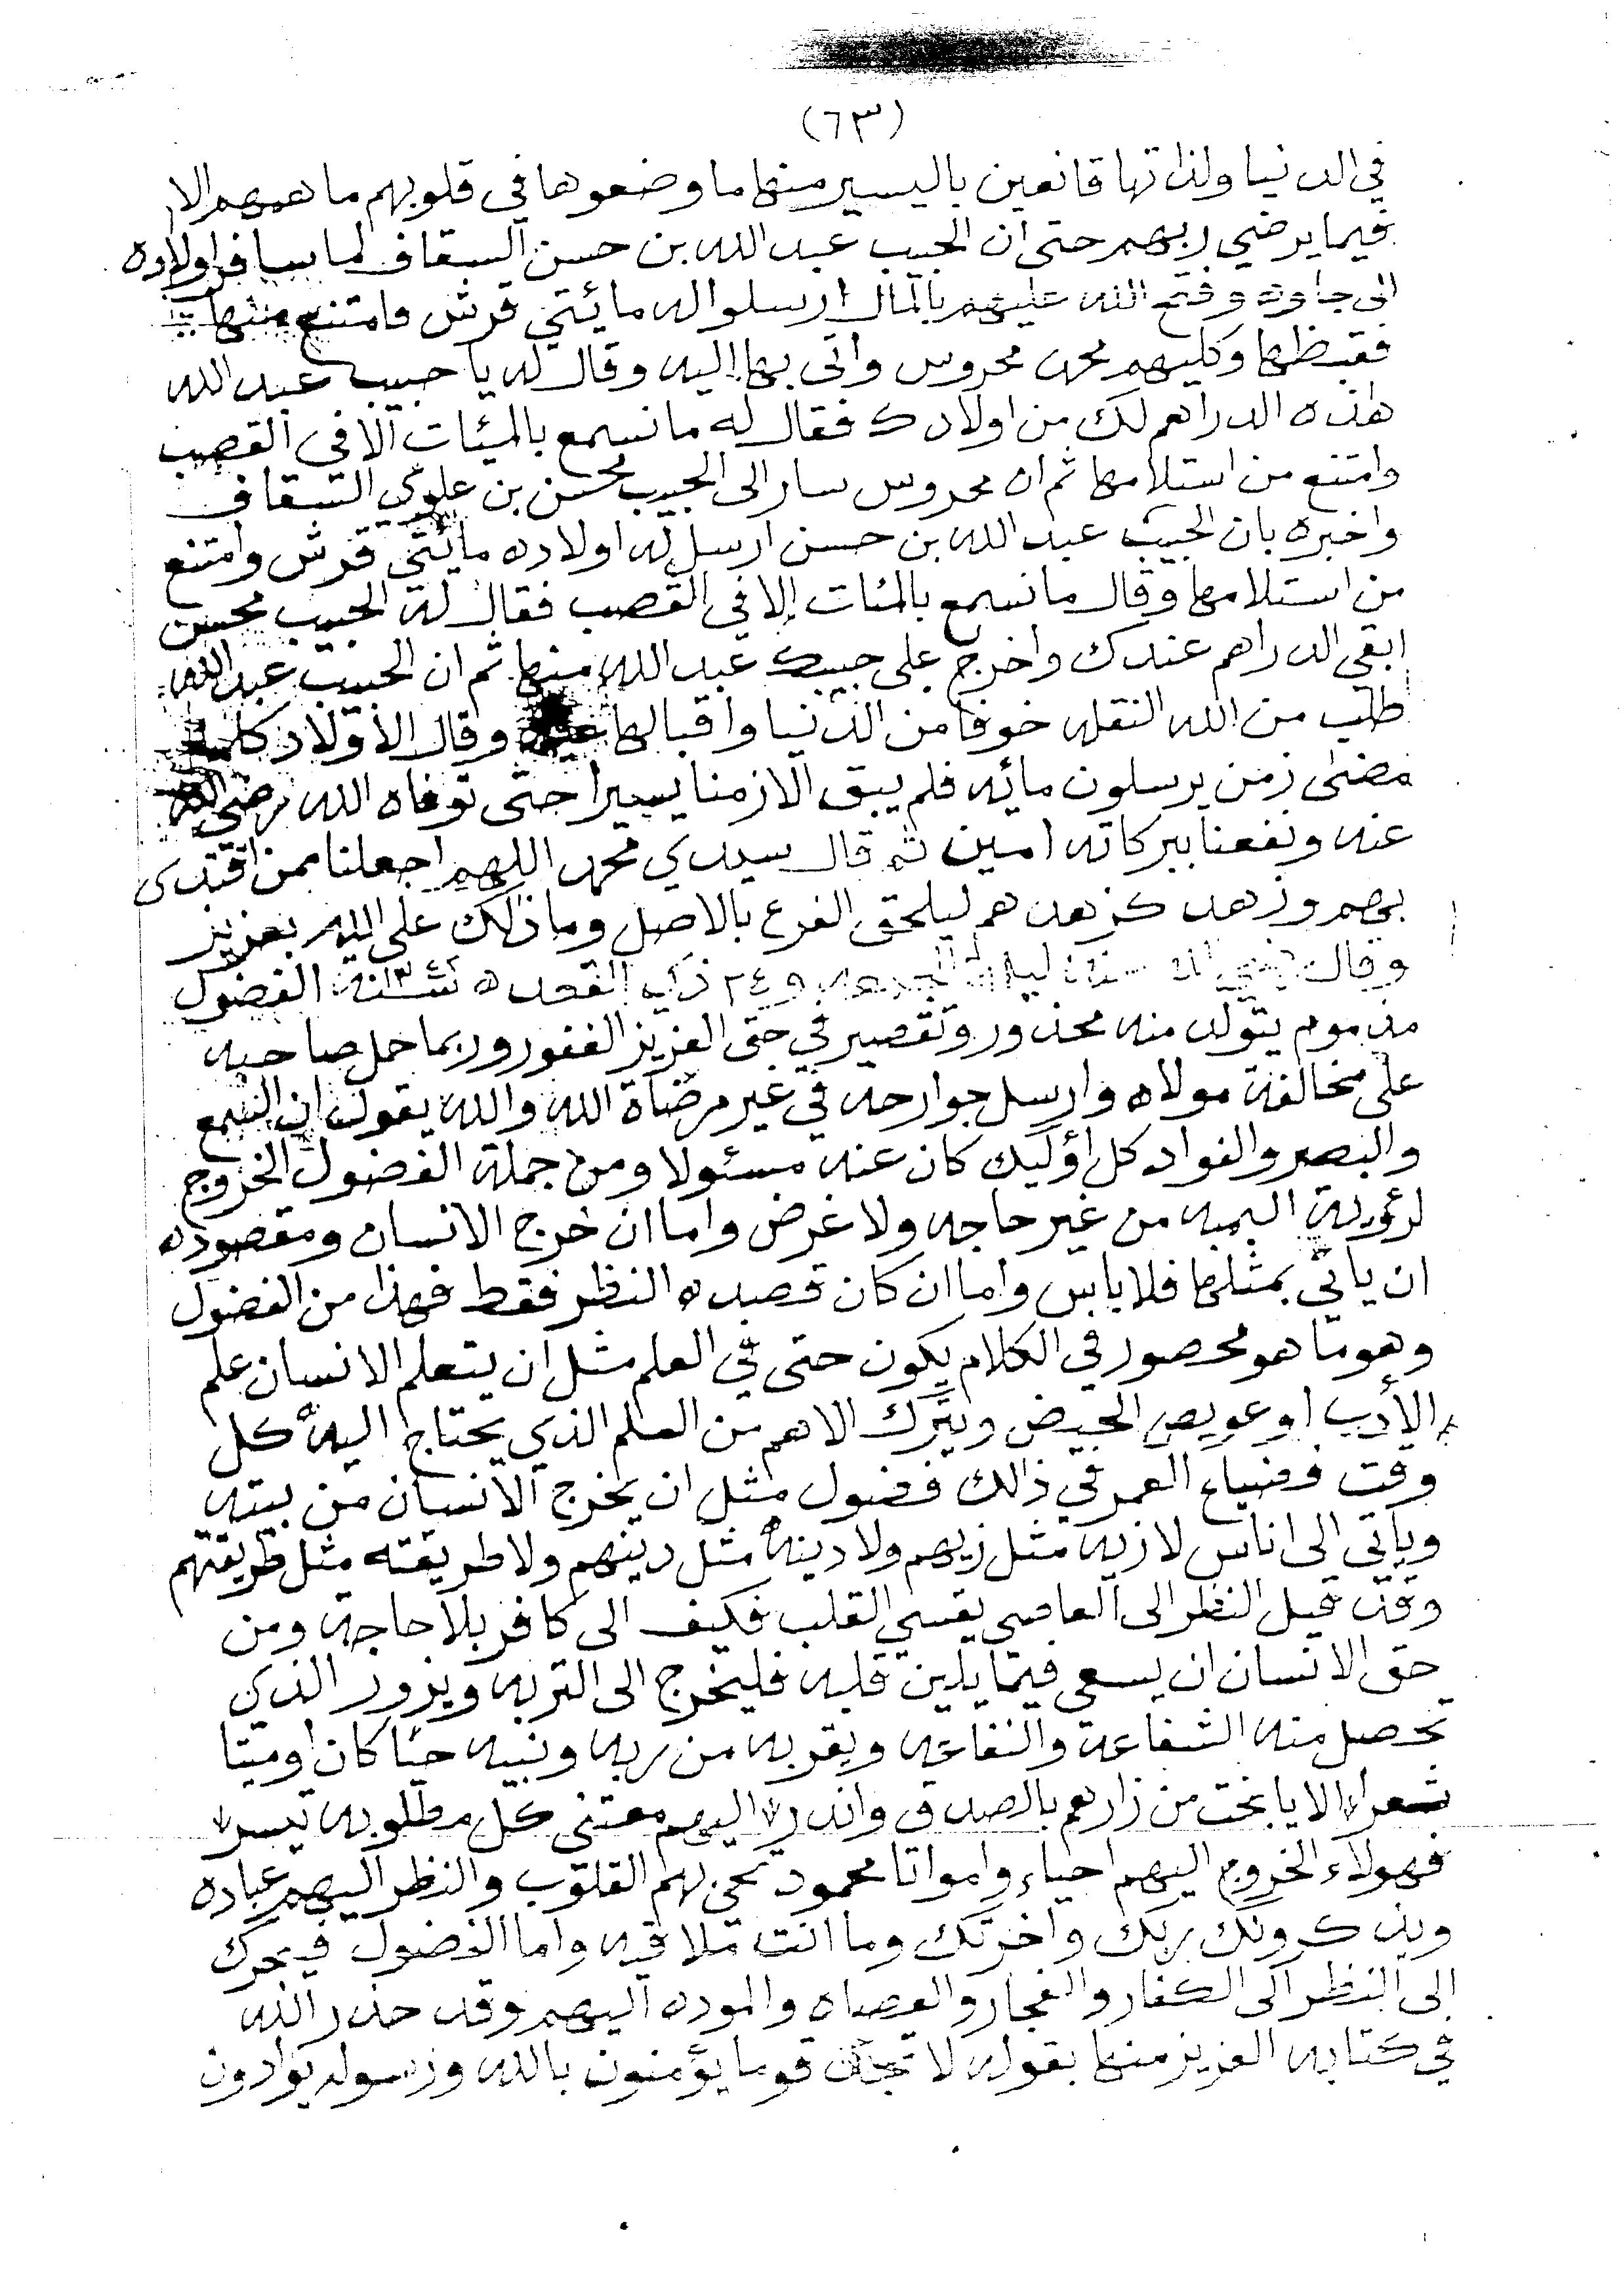 (٦٣)
في الدنيا ولذاتها قانعين باليسير منها ما وضعوها في قلوبهم ما همهم الا
فيما يرضي ربهم حتى ان الحبيب عبد الله بن حسن السقاف لما سافر اولاده
الى جاوه وفتح الله عليهم بالمال ارسلوا له مائتي قرش فامتنع منها
فقبضها وكليهم محمد محروس واتى بها اليه وقال له يا حبيب عبد الله
هذه الدراهم لك من اولادك فقال له ما نسمع بالميئات الا في القصب
وامتنع من استلامها ثم ان محروس سار الى الحبيب محسن بن علوي السقاف
واخبره بان الحبيب عبد الله بن حسن ارسل له اولاده مائتي قرش وامتنع
من استلامها وقال ما نسمع بالمئات إلا في القصب فقال له الحبيب محسن
ابقي الدراهم عندك واخرج على حبيبك عبد الله منها ثم ان الحبيب عبد الله
طلب من الله النقله خوفا من الدنيا واقبالها وقال الاولاد كلما
مضى زمن يرسلون مائه فلم يبق الا زمنا يسيرا حتى توفاه الله رضي الله
عنه ونفعنا ببركاته امين ثم قال سيدي محمد اللهم اجعلنا ممن اقتدى
بهم وزهد كزهدهم ليلحق الفرع بالاصل وما ذلك على الله بعزيز
وقال رضي الله عنه ليلة الجمعه و٢٤ ذي القعده سنة الفضول
مذموم يتولد منه محذور وتقصير في حق العزيز الغفور وربما حمل صاحبه
على مخالفة مولاه وارسل جوارحه في غير مرضاة الله والله يقول ان السمع
والبصر والفواد كل أوليك كان عنه مسئولا ومن جملة الفضول الخروج
لرؤية البمبه من غير حاجه ولا غرض واما ان خرج الانسان ومقصوده
ان ياتي بمثلها فلا باس واما ان كان قصده النظر فقط فهذا من الفضول
وهو ما هو محصور في الكلام يكون حتى في العلم مثل ان يتعلم الانسان علم
الأدب او عويص الحيض ويترك الاهم من العلم الذي يحتاج اليه كل
وقت فضياع العمر في ذالك فضول مثل ان يخرج الانسان من بيته
وياتي الى اناس لا زيه مثل زيهم ولا دينه مثل دينهم ولا طريقته مثل طريقتهم
وقد قيل النظر الى العاصي يقسي القلب فكيف الى كافر بلا حاجة ومن
حق الانسان ان يسعى فيما يلين قلبه فليخرج الى التربه ويزور الذي
تحصل منه الشفاعة والنفاعه ويقربه من ربه ونبيه حيا كان او ميتا
شعرا الا يا بخت من زارهم بالصدق واندر اليهم معتني كل مطلوبه تيسر
فهولاء الخروج اليهم احياء وامواتا محمود تحن لهم القلوب والنظر اليهم عباده
ويذكرونك ربك واخرتك وما انت ملاقيه واما الفضول فيجرك
إلى النظر الى الكفار والفجار والعصاه والموده اليهم وقد حذر الله
في كتابه العزيز منها بقوله لا تجد قوما يؤمنون بالله ورسوله يوادون